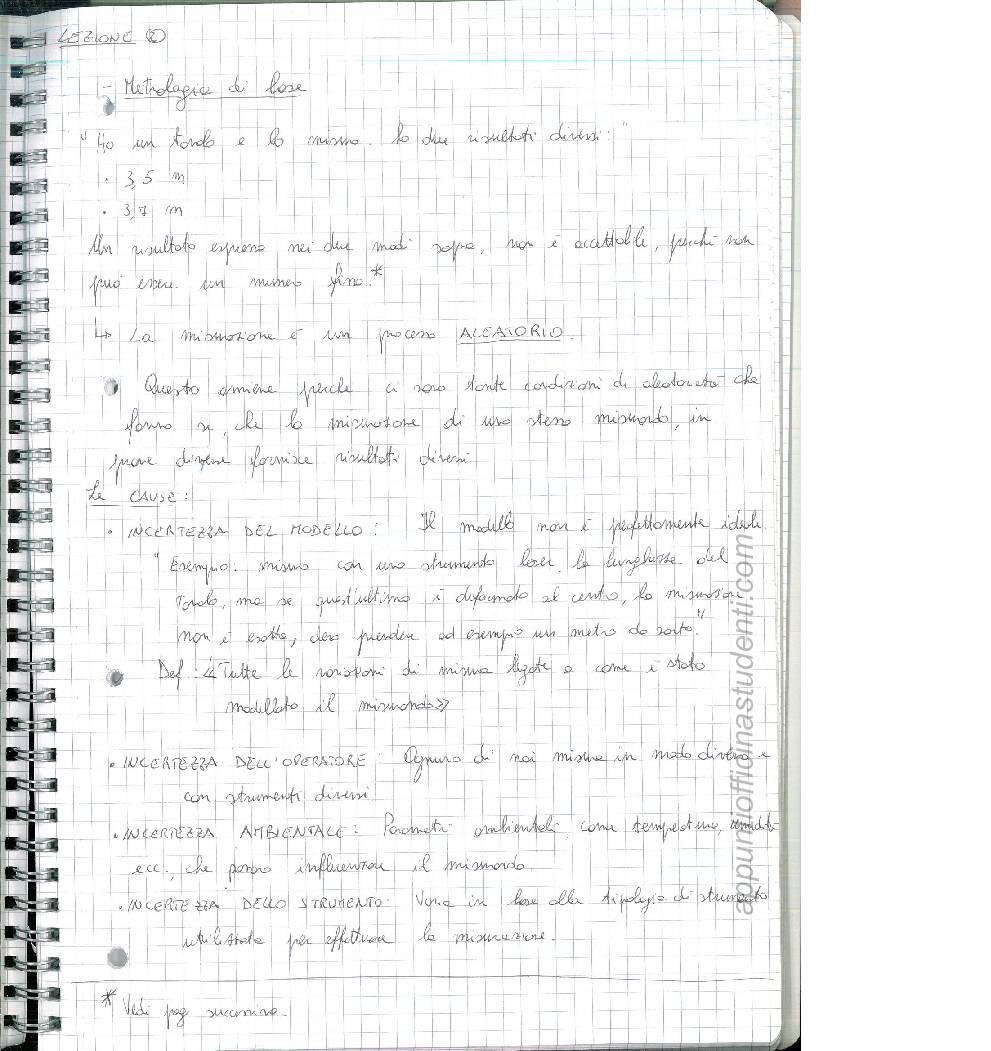 LEZIONE 2
- Metrologia di base
"Ho un tavolo e lo misuro. ho due risultati diversi:"
· 3,5 m
· 3,7 m
Un risultato espresso nei due modi sopra, non è accettabile, perché non
può essere un numero fino.*
↳ La misurazione è un processo ALEATORIO.
Questo avviene perché ci sono tante condizioni di aleatorietà che
fanno sì, che la misurazione di uno stesso misurando, in
prove diverse fornisce risultati diversi
Le CAUSE:
· INCERTEZZA DEL MODELLO: Il modello non è perfettamente ideale.
"Esempio: misuro con uno strumento laser, la lunghezza del
tavolo, ma se quest'ultimo è deformato al centro, la misurazione
non è esatta, devo prendere ad esempio un metro da sarto."
Def: «Tutte le variazioni di misura legate a come è stato
modellato il misurando»
· INCERTEZZA DELL'OPERATORE: Ognuno di noi misura in modo diverso e
con strumenti diversi
· INCERTEZZA AMBIENTALE: Parametri ambientali, come temperatura, umidità
ecc., che possono influenzare il misurando.
· INCERTEZZA DELLO STRUMENTO: Varia in base alla tipologia di strumento
utilizzata per effettuare la misurazione.
* Vedi pag successiva.
appuntiofficinastudenti.com